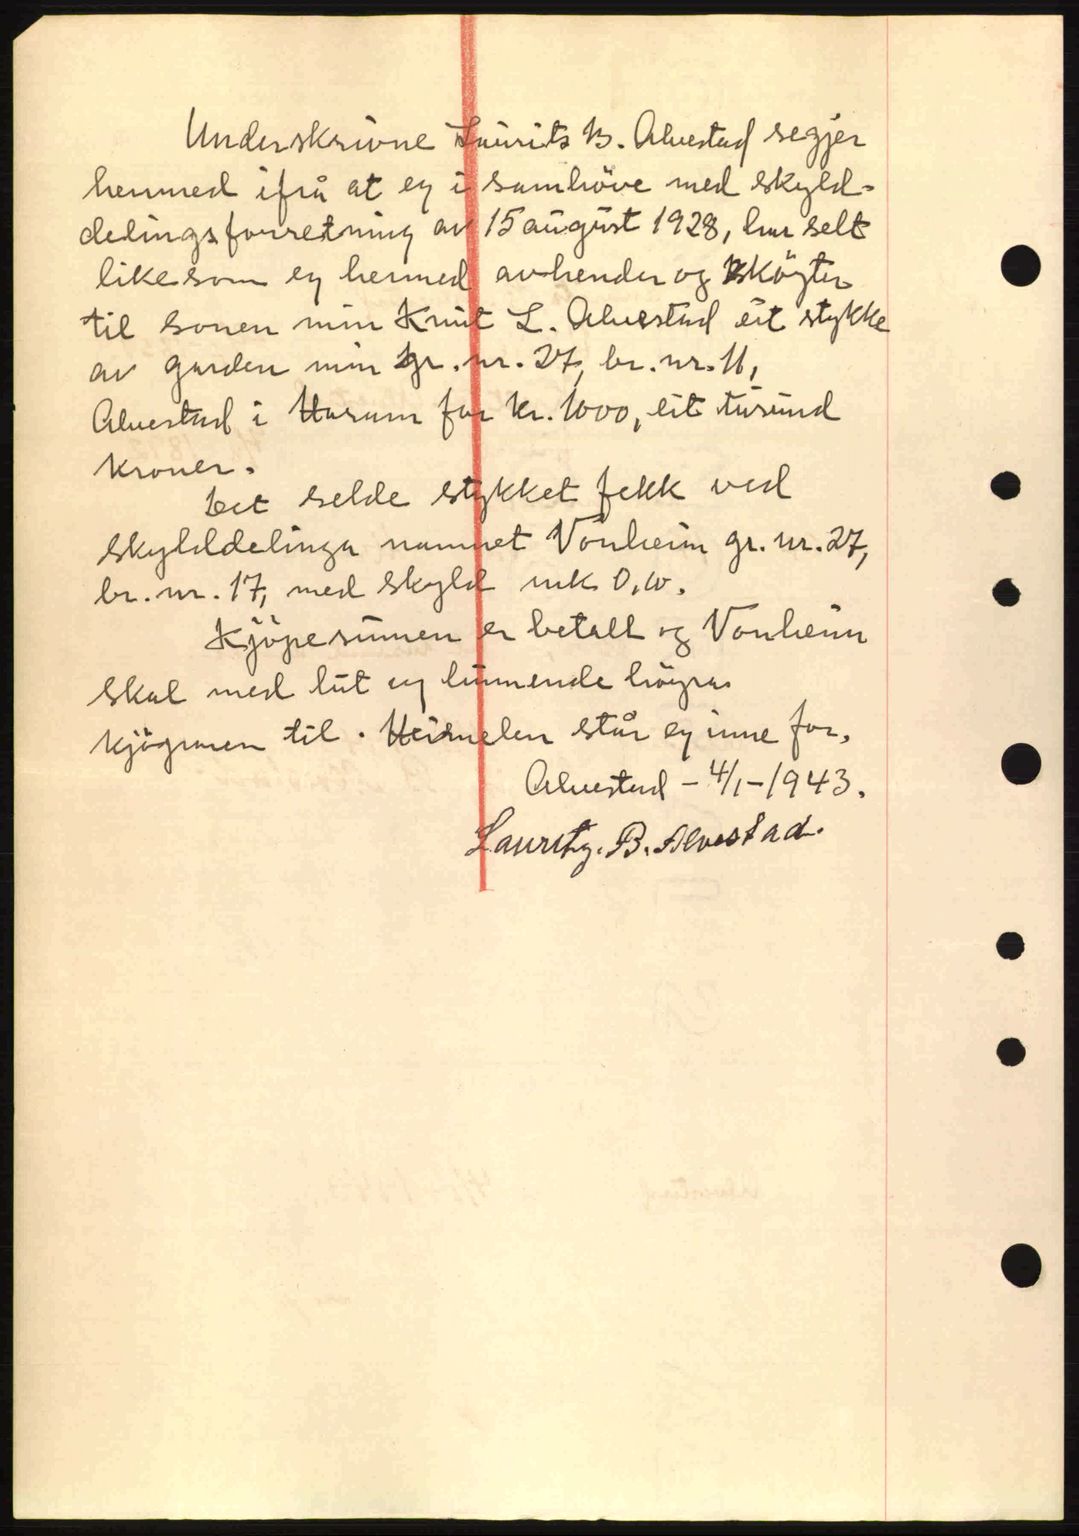 Underskrivne Laurits B. Alvestad segjer
hermed ifrå at eg i samhöve med skyld-
delingsforretning av 15 august 1928, har selt
likesom eg hermed avhender og skøyter
til sonen min Knut L. Alvestad eit stykke
av garden min gr. nr. 27, br. nr. 11,
Alvestad i Haram for kr. 1000, eit tusund
kroner.
Det selde stykket fekk ved
skylddelinga namnet Vonheim gr. nr. 27,
br. nr. 17, med skyld mk 0,10.
Kjöpesumen er betalt og Vonheim
skal med lut og lunnende höyra
kjöparen til. Heimelen står eg inne for.
Alvestad - 4/1 - 1943.
Lauritz. B. Alvestad.